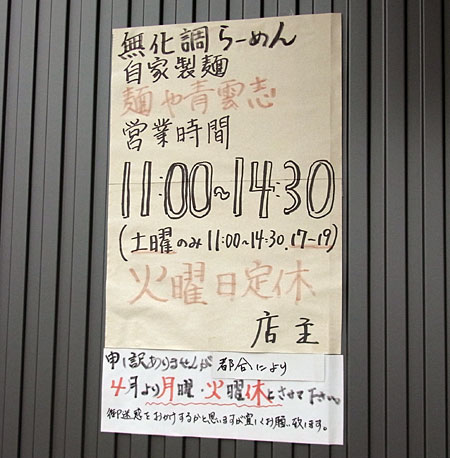 無化調らーめん
自家製麺
麺や青雲志
営業時間
11:00~14:30
(土曜のみ11:00~14:30.17-19)
火曜日定休
店主
申し訳ありませんが都合により
4月より月曜・火曜休とさせて下さい
御迷惑をおかけするかと思いますが宜しくお願い致します。